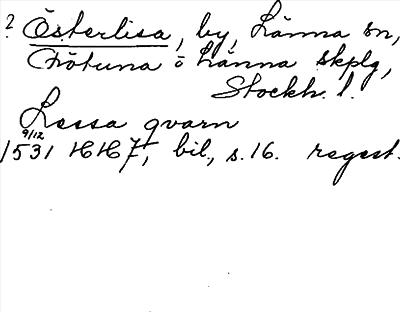 ? Österlisa, by, Länna sn,
Frötuna o Länna skplg,
Stockh. l.
Lessa qvarn
9/12
1531 HH 7, bil, s. 16. regest.